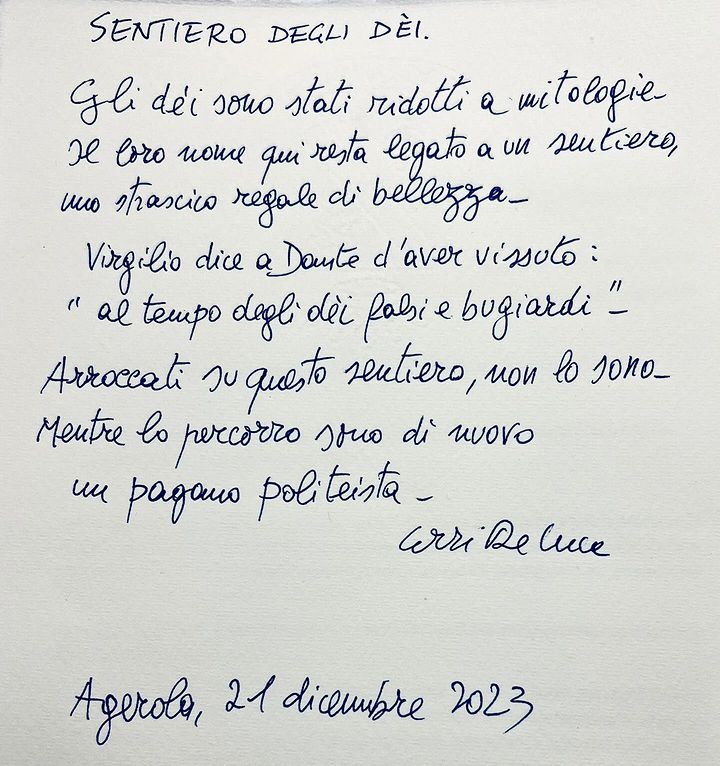 SENTIERO DEGLI DÈI.
Gli dèi sono stati ridotti a mitologie_
Il loro nome qui resta legato a un sentiero,
uno strascico regale di bellezza_
Virgilio dice a Dante d'aver vissuto:
"al tempo degli dèi falsi e bugiardi"_
Arroccati su questo sentiero, non lo sono_
Mentre lo percorro sono di nuovo
un pagano politeista_
Erri De Luca
Agerola, 21 dicembre 2023